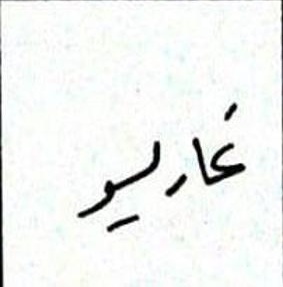 غارليو